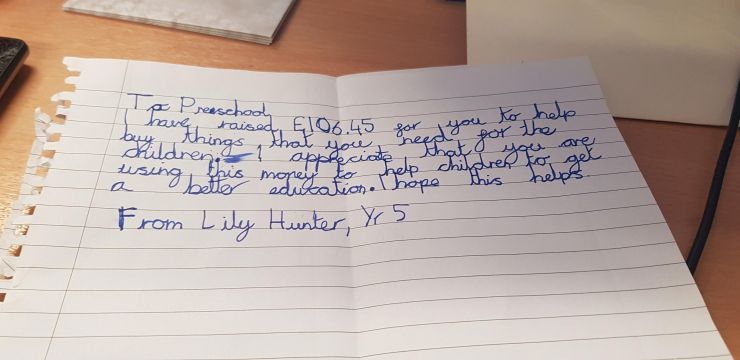 To Preeschool
I have raised £106.45 for you to help
buy things that you need for the
children. I appreciate that you are
using this money to help children to get
a better education. I hope this helps.
From Lily Hunter, Yr 5